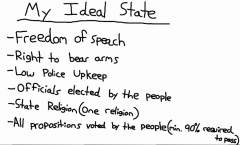 My Ideal State
-Freedom of speech
-Right to bear arms
-Low Police Upkeep
-Officials elected by the people
-State Religion (One religion)
-All propositions voted by the people (min. 90% required to pass)